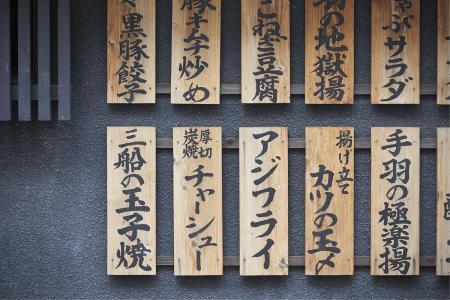 黒豚餃子
豚キムチ炒め
ねぎ豆腐
羽の地獄揚
ぶサラダ
三船の玉子焼
厚切
炭焼
チャーシュー
アジフライ
揚げ立て
カツの玉〆
手羽の極楽揚